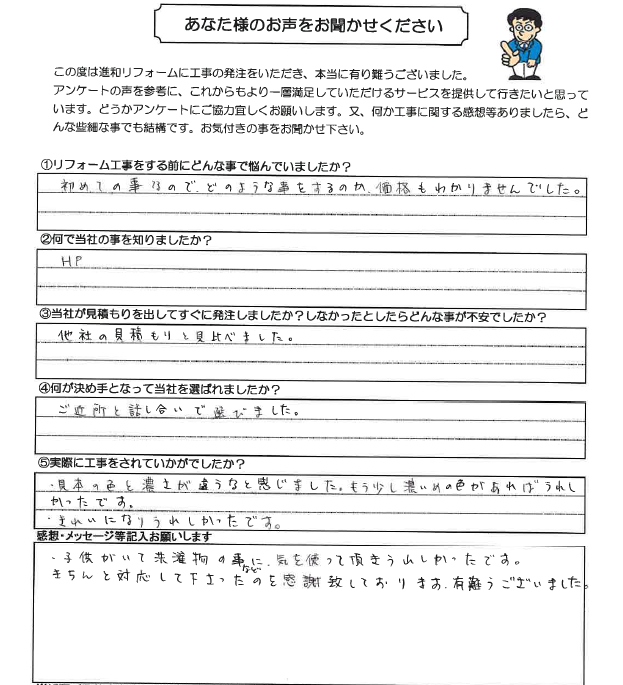 あなた様のお声をお聞かせください
この度は進和リフォームに工事の発注をいただき、本当に有り難うございました。
アンケートの声を参考に、これからもより一層満足していただけるサービスを提供して行きたいと思って
います。どうかアンケートにご協力宜しくお願いします。又、何か工事に関する感想等ありましたら、ど
んな些細な事でも結構です。お気付きの事をお聞かせ下さい。
①リフォーム工事をする前にどんな事で悩んでいましたか？
初めての事なので、どのような事をするのか、価格もわかりませんでした。
②何で当社の事を知りましたか？
HP
③当社が見積もりを出してすぐに発注しましたか？しなかったとしたらどんな事が不安でしたか？
他社の見積もりと見比べました。
④何が決め手となって当社を選ばれましたか？
ご近所と話し合いで選びました。
⑤実際に工事をされていかがでしたか？
・見本の色と濃さが違うなと感じました。もう少し濃いめの色があればうれし
かったです。
・きれいになりうれしかったです。
感想・メッセージ等記入お願いします
・子供がいて洗濯物の事などに、気を使って頂きうれしかったです。
きちんと対応して下さったのを感謝致しております。有難うございました。